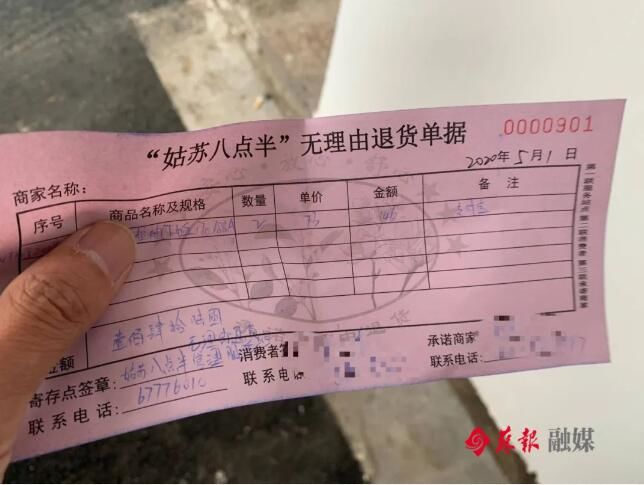 “姑苏八点半”无理由退货单据
0000901
2020年5月1日
商家名称：
序号 商品名称及规格 数量 单价 金额 备注
2 73 146 支付宝
金额 壹佰肆拾陆圆
寄存点签章： 姑苏八点半
消费者
承诺商家
联系电话： 67776010
联系电话：
联系电话：
第一联服务站点 第二联消费者 第三联承诺商家
苏报 融媒